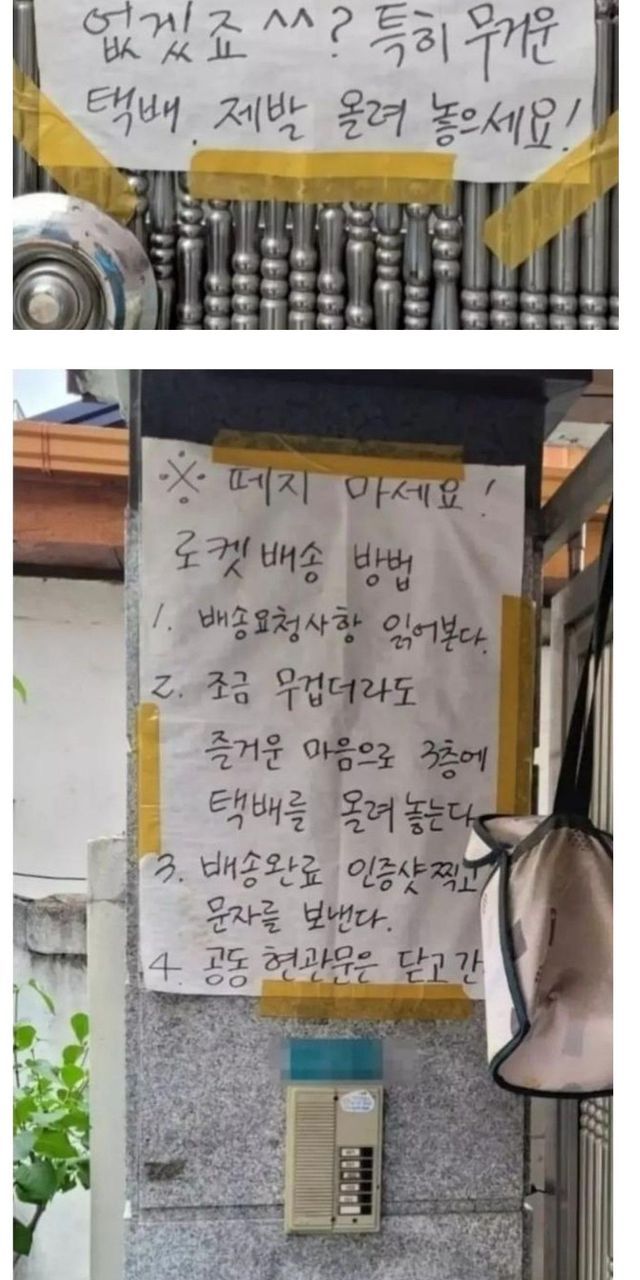 없겠죠 ^^? 특히 무거운
택배. 제발 올려 놓으세요!
※ 떼지 마세요!
로켓배송 방법
1. 배송요청사항 읽어본다.
2. 조금 무겁더라도
즐거운 마음으로 3층에
택배를 올려놓는다
3. 배송완료 인증샷찍고
문자를 보낸다.
4. 공동현관문은 닫고 간